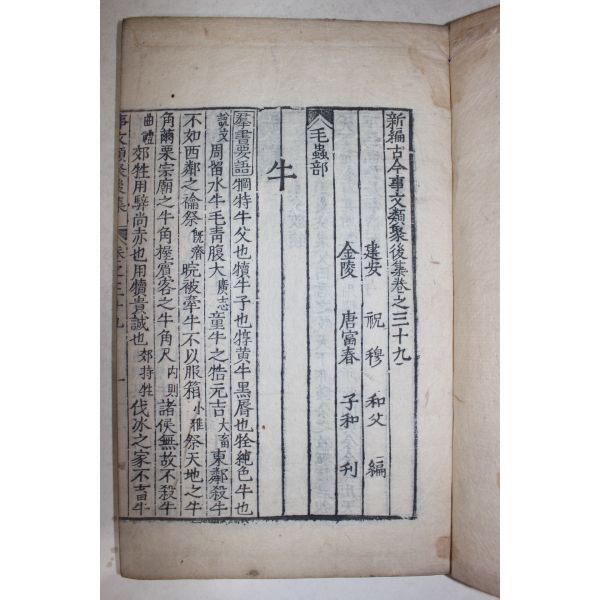 新編古今事文類聚後集卷之三十九
建安 祝穆 和父 編
金陵 唐富春 子和 刊
毛蟲部
牛
羣書要語犅特牛父也犢牛子也犉黃牛黑脣也牷純色牛也
說文周留水牛毛青腹大廣志童牛之牿元吉大畜東鄰殺牛
不如西鄰之禴祭旣濟睆彼牽牛不以服箱小雅祭天地之牛
角繭栗宗廟之牛角握賓客之牛角尺內則諸侯無故不殺牛
曲禮郊牲用騂尚赤也用犢貴誠也郊特牲伐冰之家不畜牛
事文類聚後集 卷之三十九 一